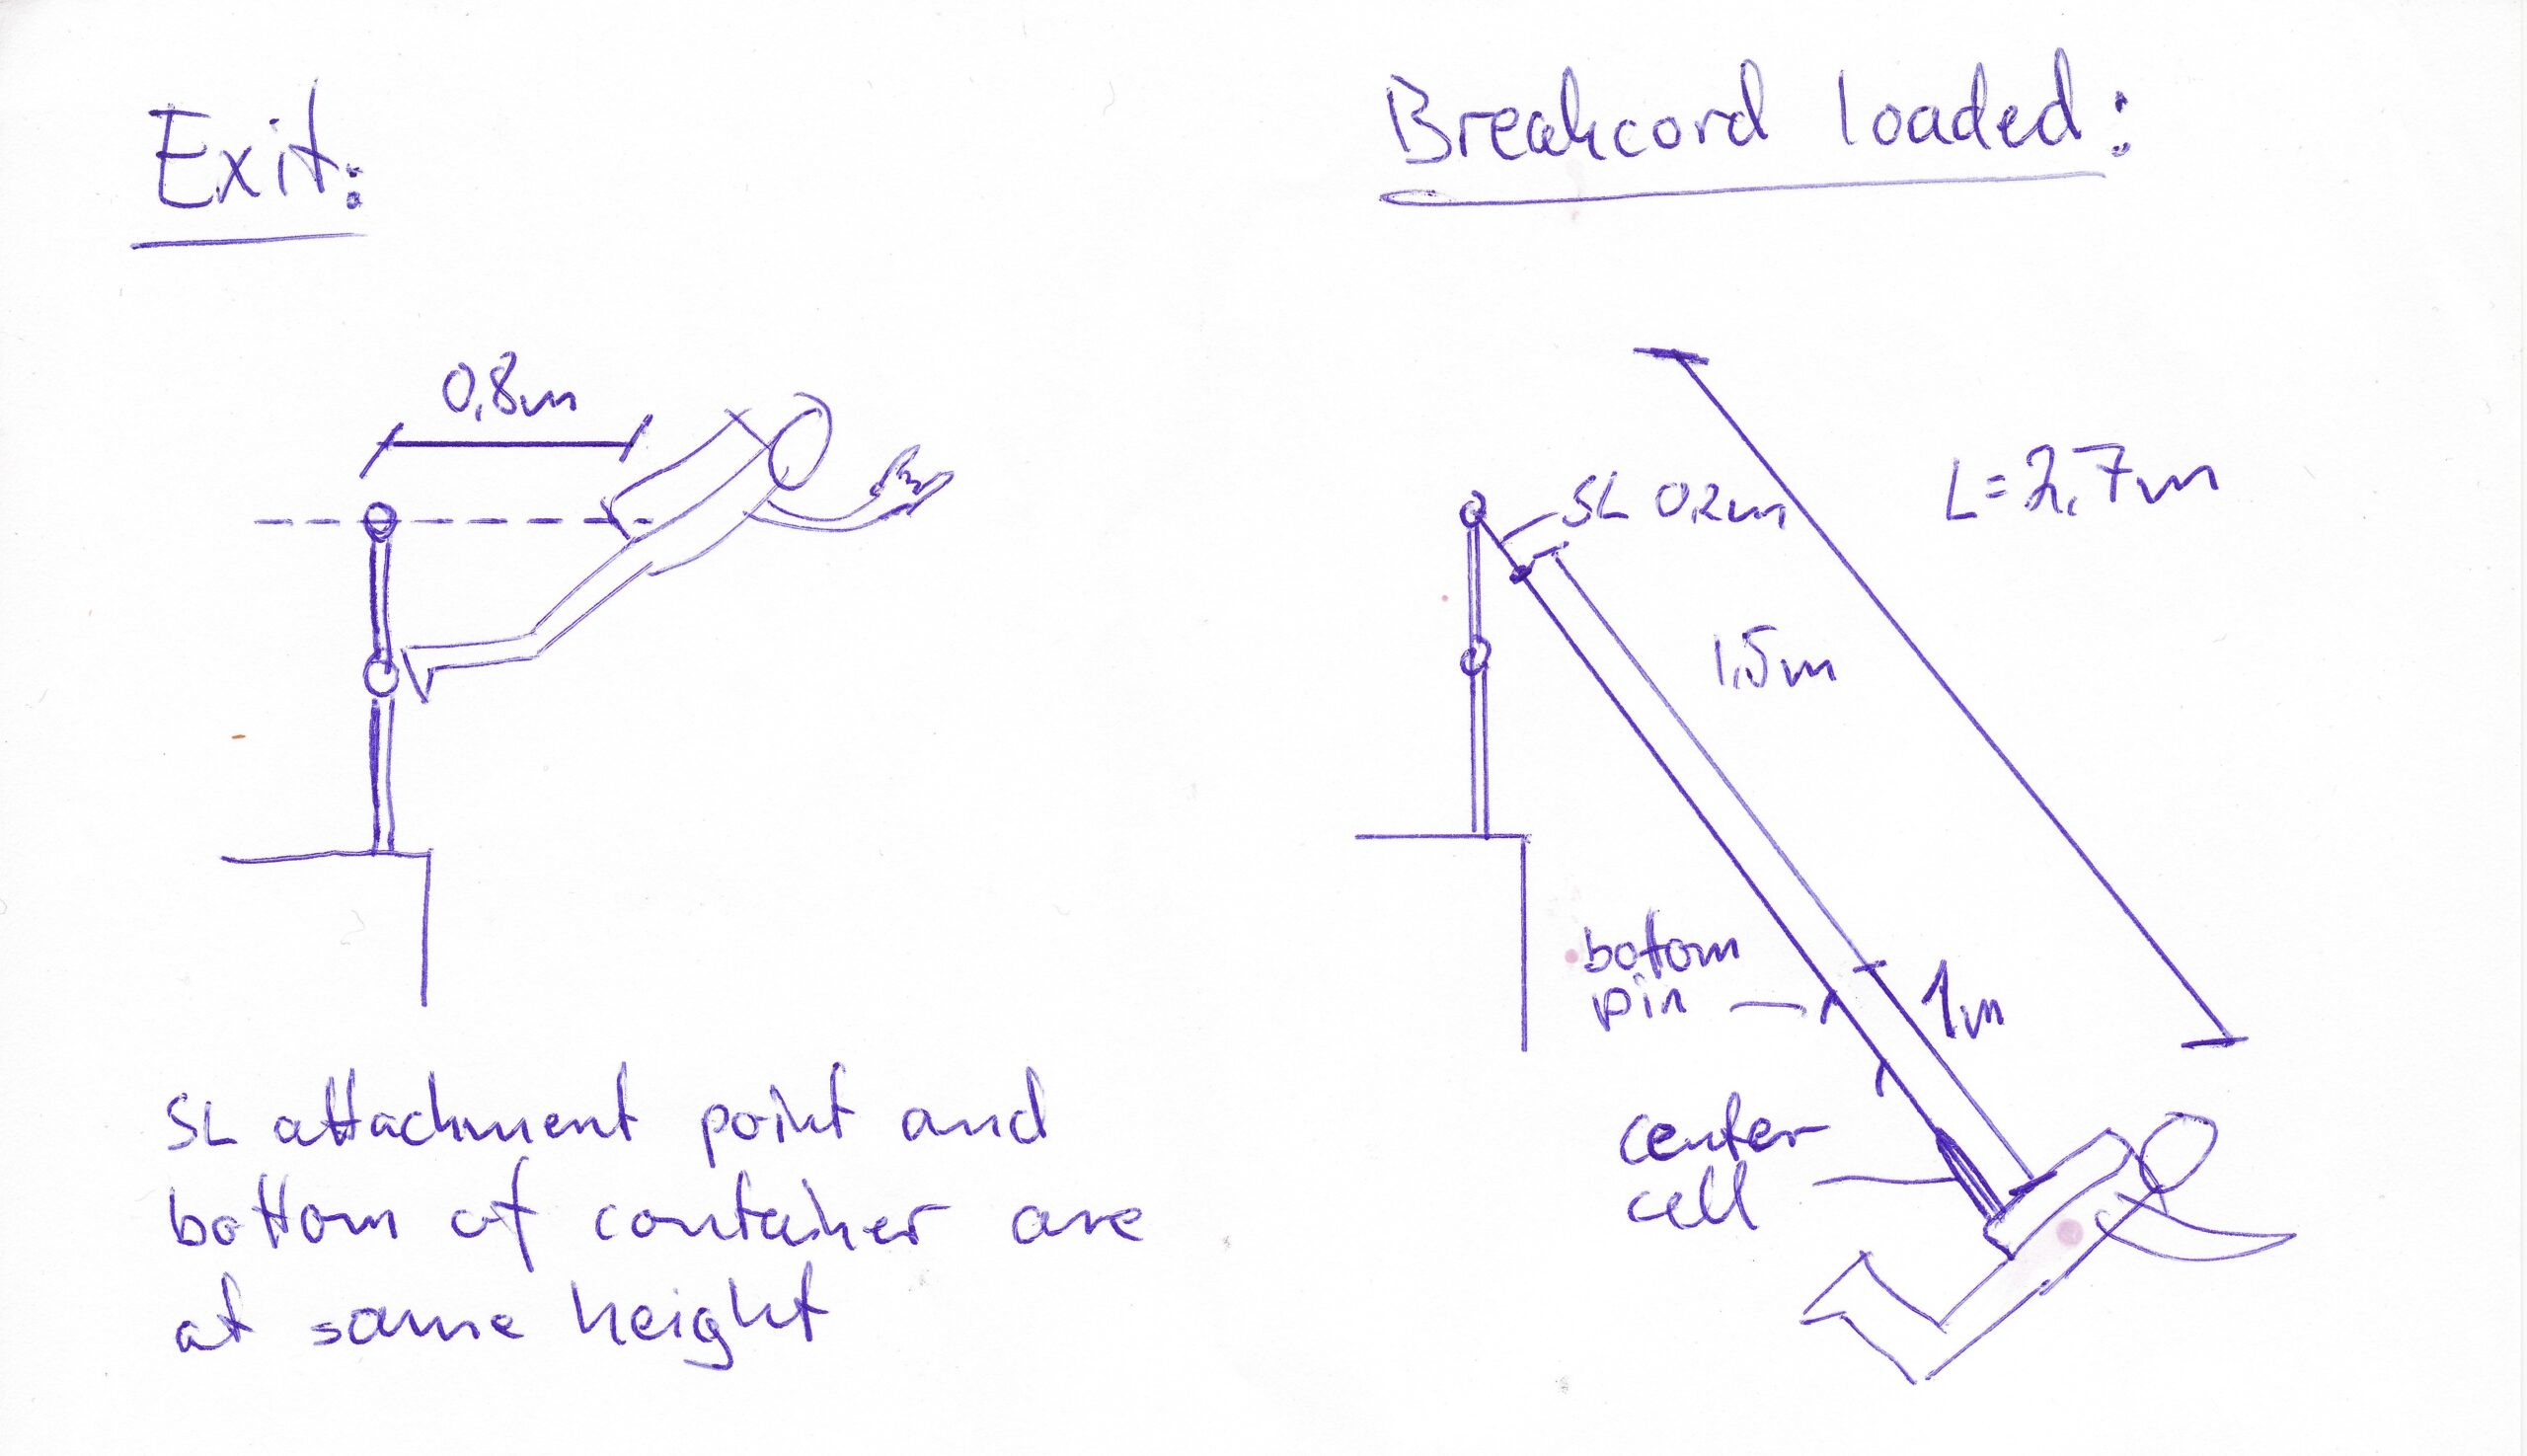 Exit:
0,8m
SL attachment point and
bottom of container are
at same height
Breakcord loaded:
L=2,7m
SL 0,2m
1,5m
bottom
pin
1m
center
cell